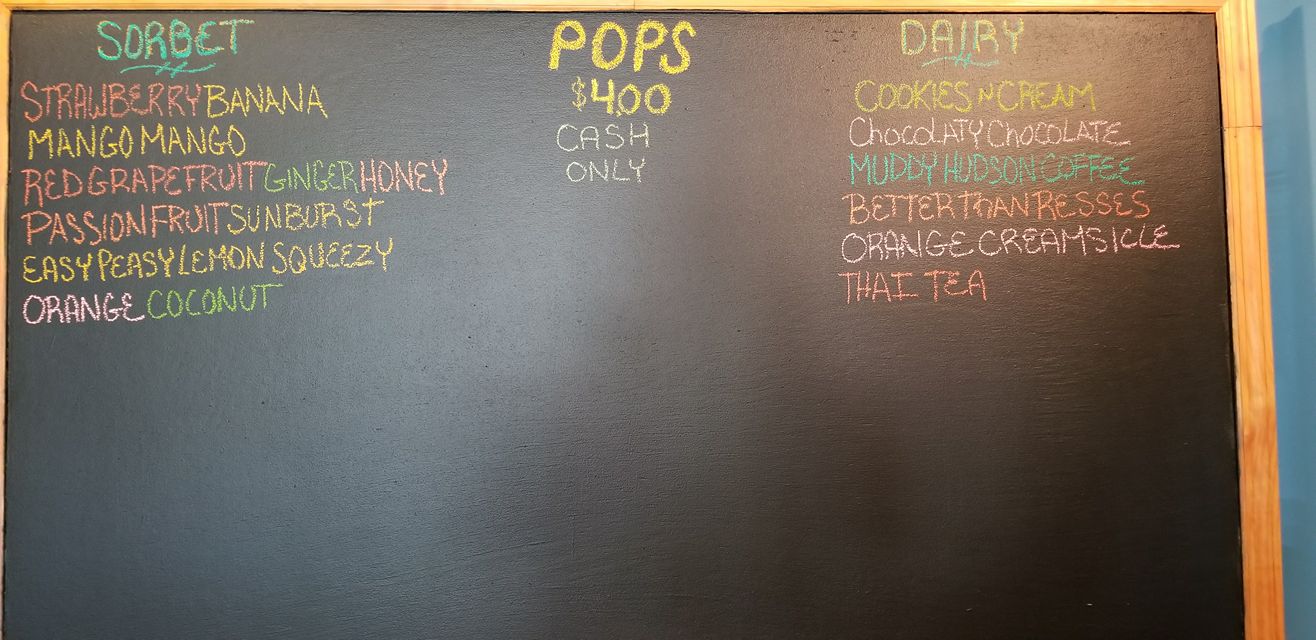 SORBET
STRAWBERRY BANANA
MANGO MANGO
RED GRAPEFRUIT GINGER HONEY
PASSION FRUIT SUNBURST
EASY PEASY LEMON SQUEEZY
ORANGE COCONUT
POPS
$4.00
CASH
ONLY
DAIRY
COOKIES N CREAM
CHOCOLATY CHOCOLATE
MUDDY HUDSON COFFEE
BETTER THAN RESSES
ORANGE CREAMSICLE
THAI TEA